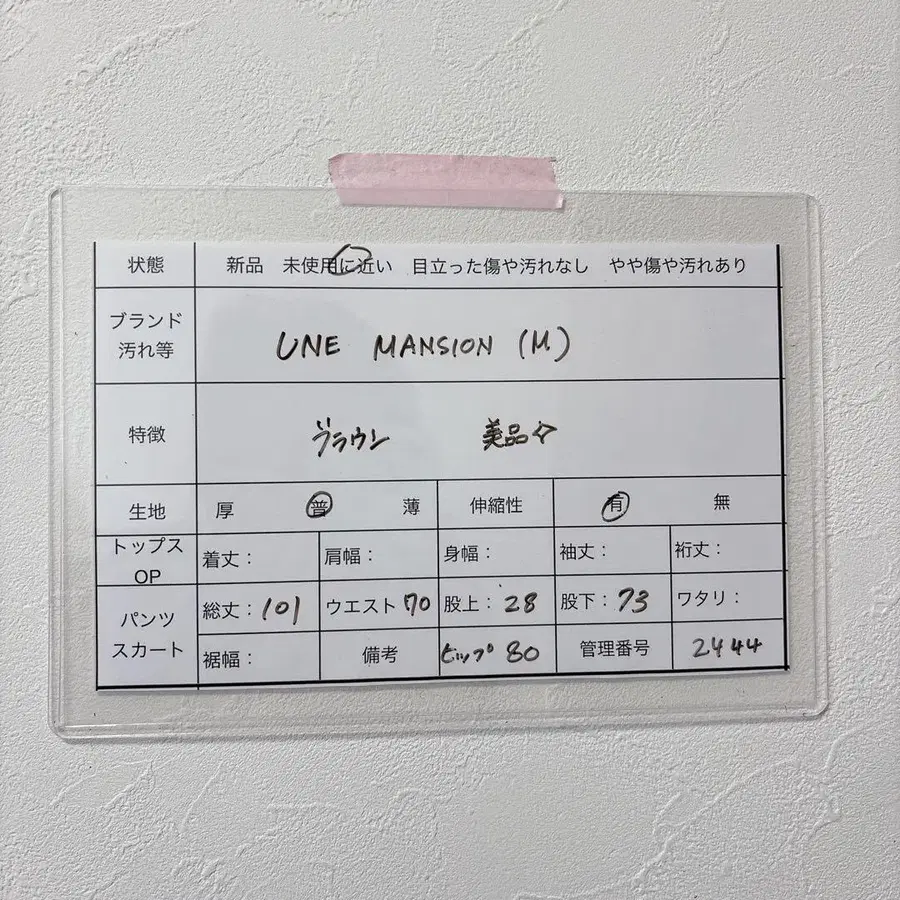 状態 新品 未使用に近い 目立った傷や汚れなし やや傷や汚れあり
ブランド
汚れ等
UNE MANSION (M)
特徴 ブラウン 美品☆
生地 厚 普 薄 伸縮性 有 無
トップス
OP
着丈: 肩幅: 身幅: 袖丈: 裄丈:
パンツ
スカート
総丈: 101 ウエスト 70 股上: 28 股下: 73 ワタリ:
裾幅: 備考 ヒップ 80 管理番号 2444